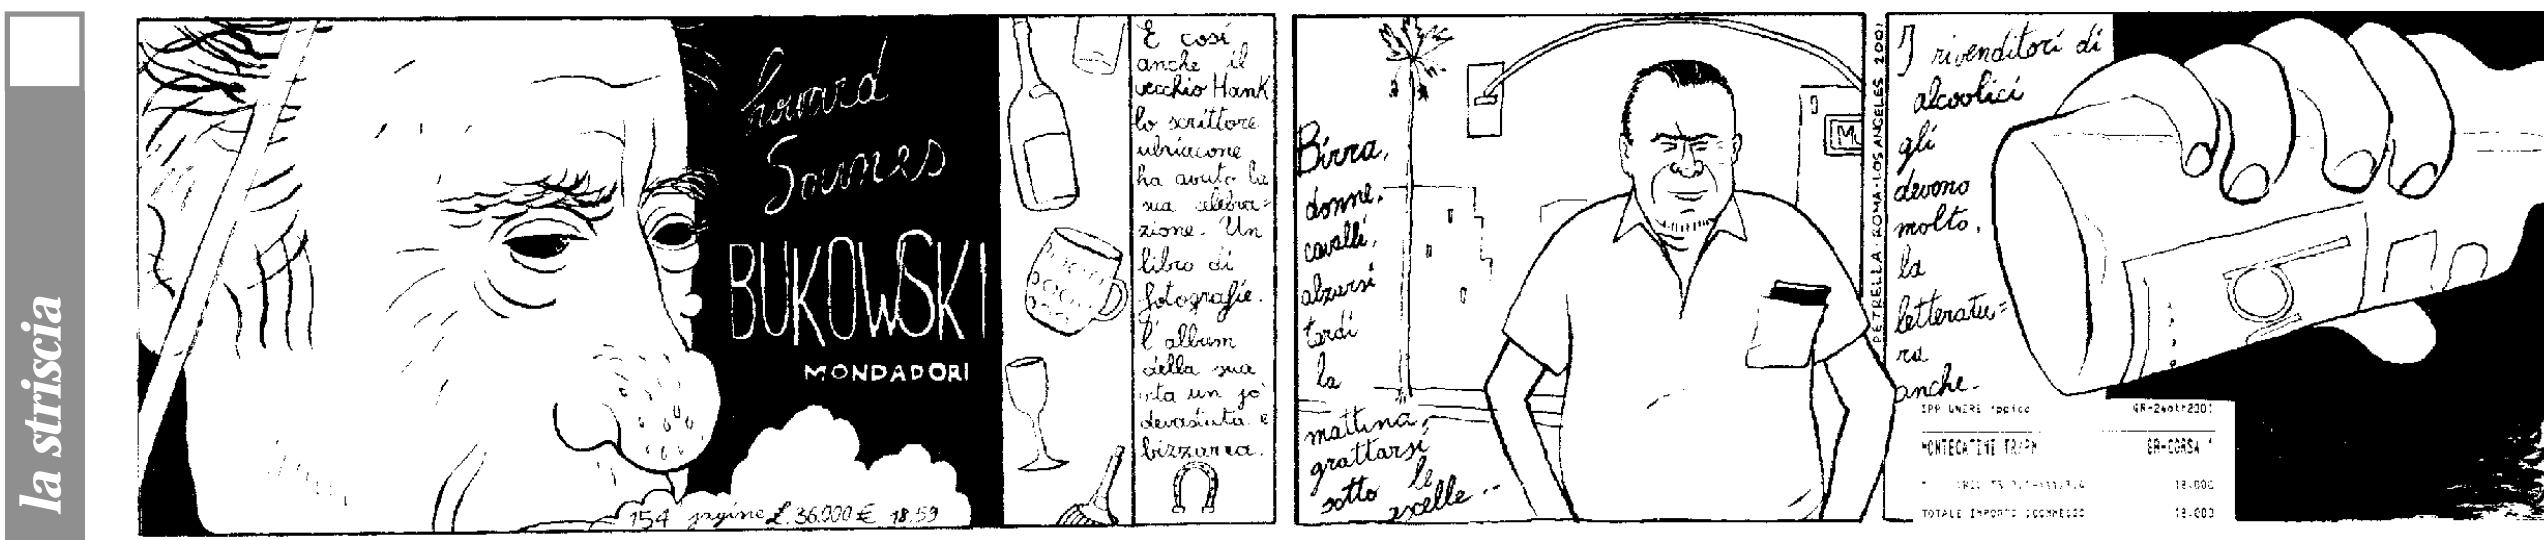 la striscia
howard
Sounes
BUKOWSKI
MONDADORI
154 pagine £. 36.000 € 18.59
E così
anche il
vecchio Hank
lo scrittore
ubriacone
ha avuto la
sua celebra=
zione. Un
libro di
fotografie.
l'album
della sua
vita un pò
devastata e
bizzarra.
Birra,
donne,
cavalli,
alzarsi
tardi
la
mattina,
grattarsi
sotto le
ascelle...
M
PETRELLA ROMA-LOS ANGELES 2001
I rivenditori di
alcoolici
gli
devono
molto.
la
letteratu=
ra
anche.
IPP UNIRE ippica
MONTECATINI
GR-CORSA
18.000
TOTALE IMPORTO SCOMMESSO 18.000